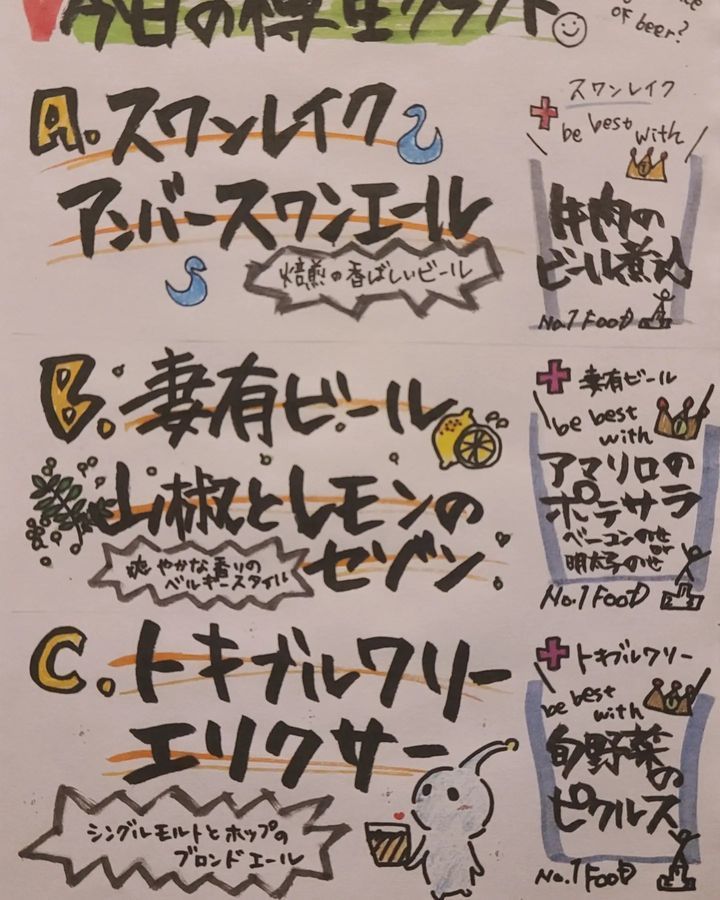 今日の樽生クラフト
of beer?
A. スワンレイク
アンバースワンエール
焙煎の香ばしいビール
+ スワンレイク
be best with
牛肉の
ビール煮込
No.1 FOOD
B. 妻有ビール
山椒とレモンの
セゾン
爽やかな香りの
ベルギースタイル
+ 妻有ビール
be best
with
アマリロの
ポテサラ
ベーコンのせ
or
明太子のせ
No.1 FOOD
C. トキブルワリー
エリクサー
シングルモルトとホップの
ブロンドエール
+ トキブルワリー
be best
with
旬野菜
の
ピクルス
No.1 FOOD